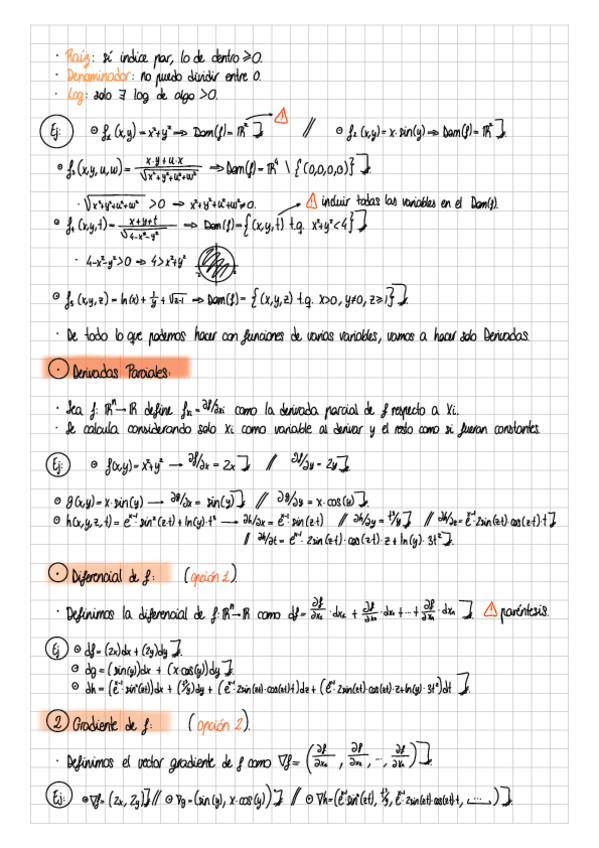 · Raíz: si índice par, lo de dentro ≥0.
· Denominador: no puedo dividir entre 0.
· Log: solo ∃ log de algo >0.
Ej: ⊙ f₁(x,y) = x²+y² ⇒ Dom(f) = ℝ² ⚠ // ⊙ f₂(x,y) = x·sin(y) ⇒ Dom(f) = ℝ²
⊙ f₃(x,y,u,w) = x·y+u·x / √(x²+y²+u²+w²) ⇒ Dom(f) = ℝ⁴ \ {(0,0,0,0)}
· √(x²+y²+u²+w²) >0 ⇒ x²+y²+u²+w²≠0. ⚠ incluir todas las variables en el Dom(f).
⊙ f₄(x,y,t) = x+y+t / √(4-x²-y²) ⇒ Dom(f) = {(x,y,t) t.q. x²+y²<4}
· 4-x²-y²>0 ⇒ 4>x²+y²
⊙ f₅(x,y,z) = ln(x) + 1/y + √(z-1) ⇒ Dom(f) = {(x,y,z) t.q. x>0, y≠0, z≥1}
· De todo lo que podemos hacer con funciones de varias variables, vamos a hacer solo Derivadas.
· Derivadas Parciales:
· Sea f: ℝⁿ→ℝ define fxᵢ = ∂f/∂xᵢ como la derivada parcial de f respecto a Xᵢ.
· Se calcula considerando solo Xᵢ como variable al derivar y el resto como si fueran constantes.
Ej: ⊙ f(x,y) = x²+y² → ∂f/∂x = 2x // ∂f/∂y = 2y
⊙ g(x,y) = x·sin(y) → ∂g/∂x = sin(y) // ∂g/∂y = x·cos(y)
⊙ h(x,y,z,t) = eˣ⁻¹·sin²(z·t) + ln(y)·t³ → ∂h/∂x = eˣ⁻¹·sin²(z·t) // ∂h/∂y = t³/y // ∂h/∂z = eˣ⁻¹·2sin(z·t)·cos(z·t)·t
// ∂h/∂t = eˣ⁻¹·2sin(z·t)·cos(z·t)·z + ln(y)·3t²
· Diferencial de f: (opción 1).
· Definimos la diferencial de f: ℝⁿ→ℝ como df = ∂f/∂x₁·dx₁ + ∂f/∂x₂·dx₂ + ··· + ∂f/∂xₙ·dxₙ ⚠ paréntesis.
Ej ⊙ df = (2x)dx + (2y)dy
⊙ dg = (sin(y))dx + (x·cos(y))dy
⊙ dh = (eˣ⁻¹·sin²(zt))dx + (t³/y)dy + (eˣ⁻¹·2sin(zt)·cos(zt)·t)dz + (eˣ⁻¹·2sin(zt)·cos(zt)·z+ln(y)·3t²)dt
2 Gradiente de f: (opción 2).
· Definimos el vector gradiente de f como ∇f = (∂f/∂x₁, ∂f/∂x₂, ···, ∂f/∂xₙ)
Ej: ⊙ ∇f = (2x, 2y) // ⊙ ∇g = (sin(y), x·cos(y)) // ⊙ ∇h = (eˣ⁻¹·sin²(zt), t³/y, eˣ⁻¹·2sin(zt)·cos(zt)·t, ...)